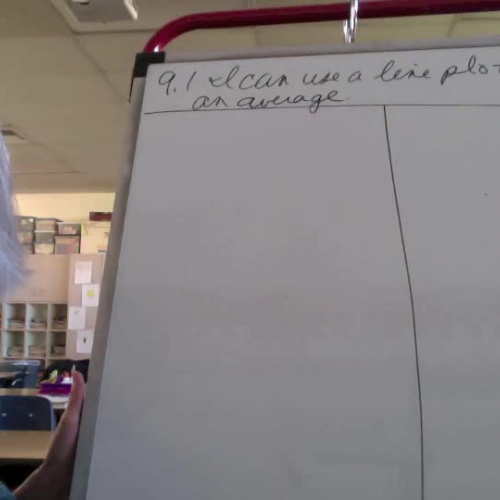 9.1 I can use a line plot
an average.